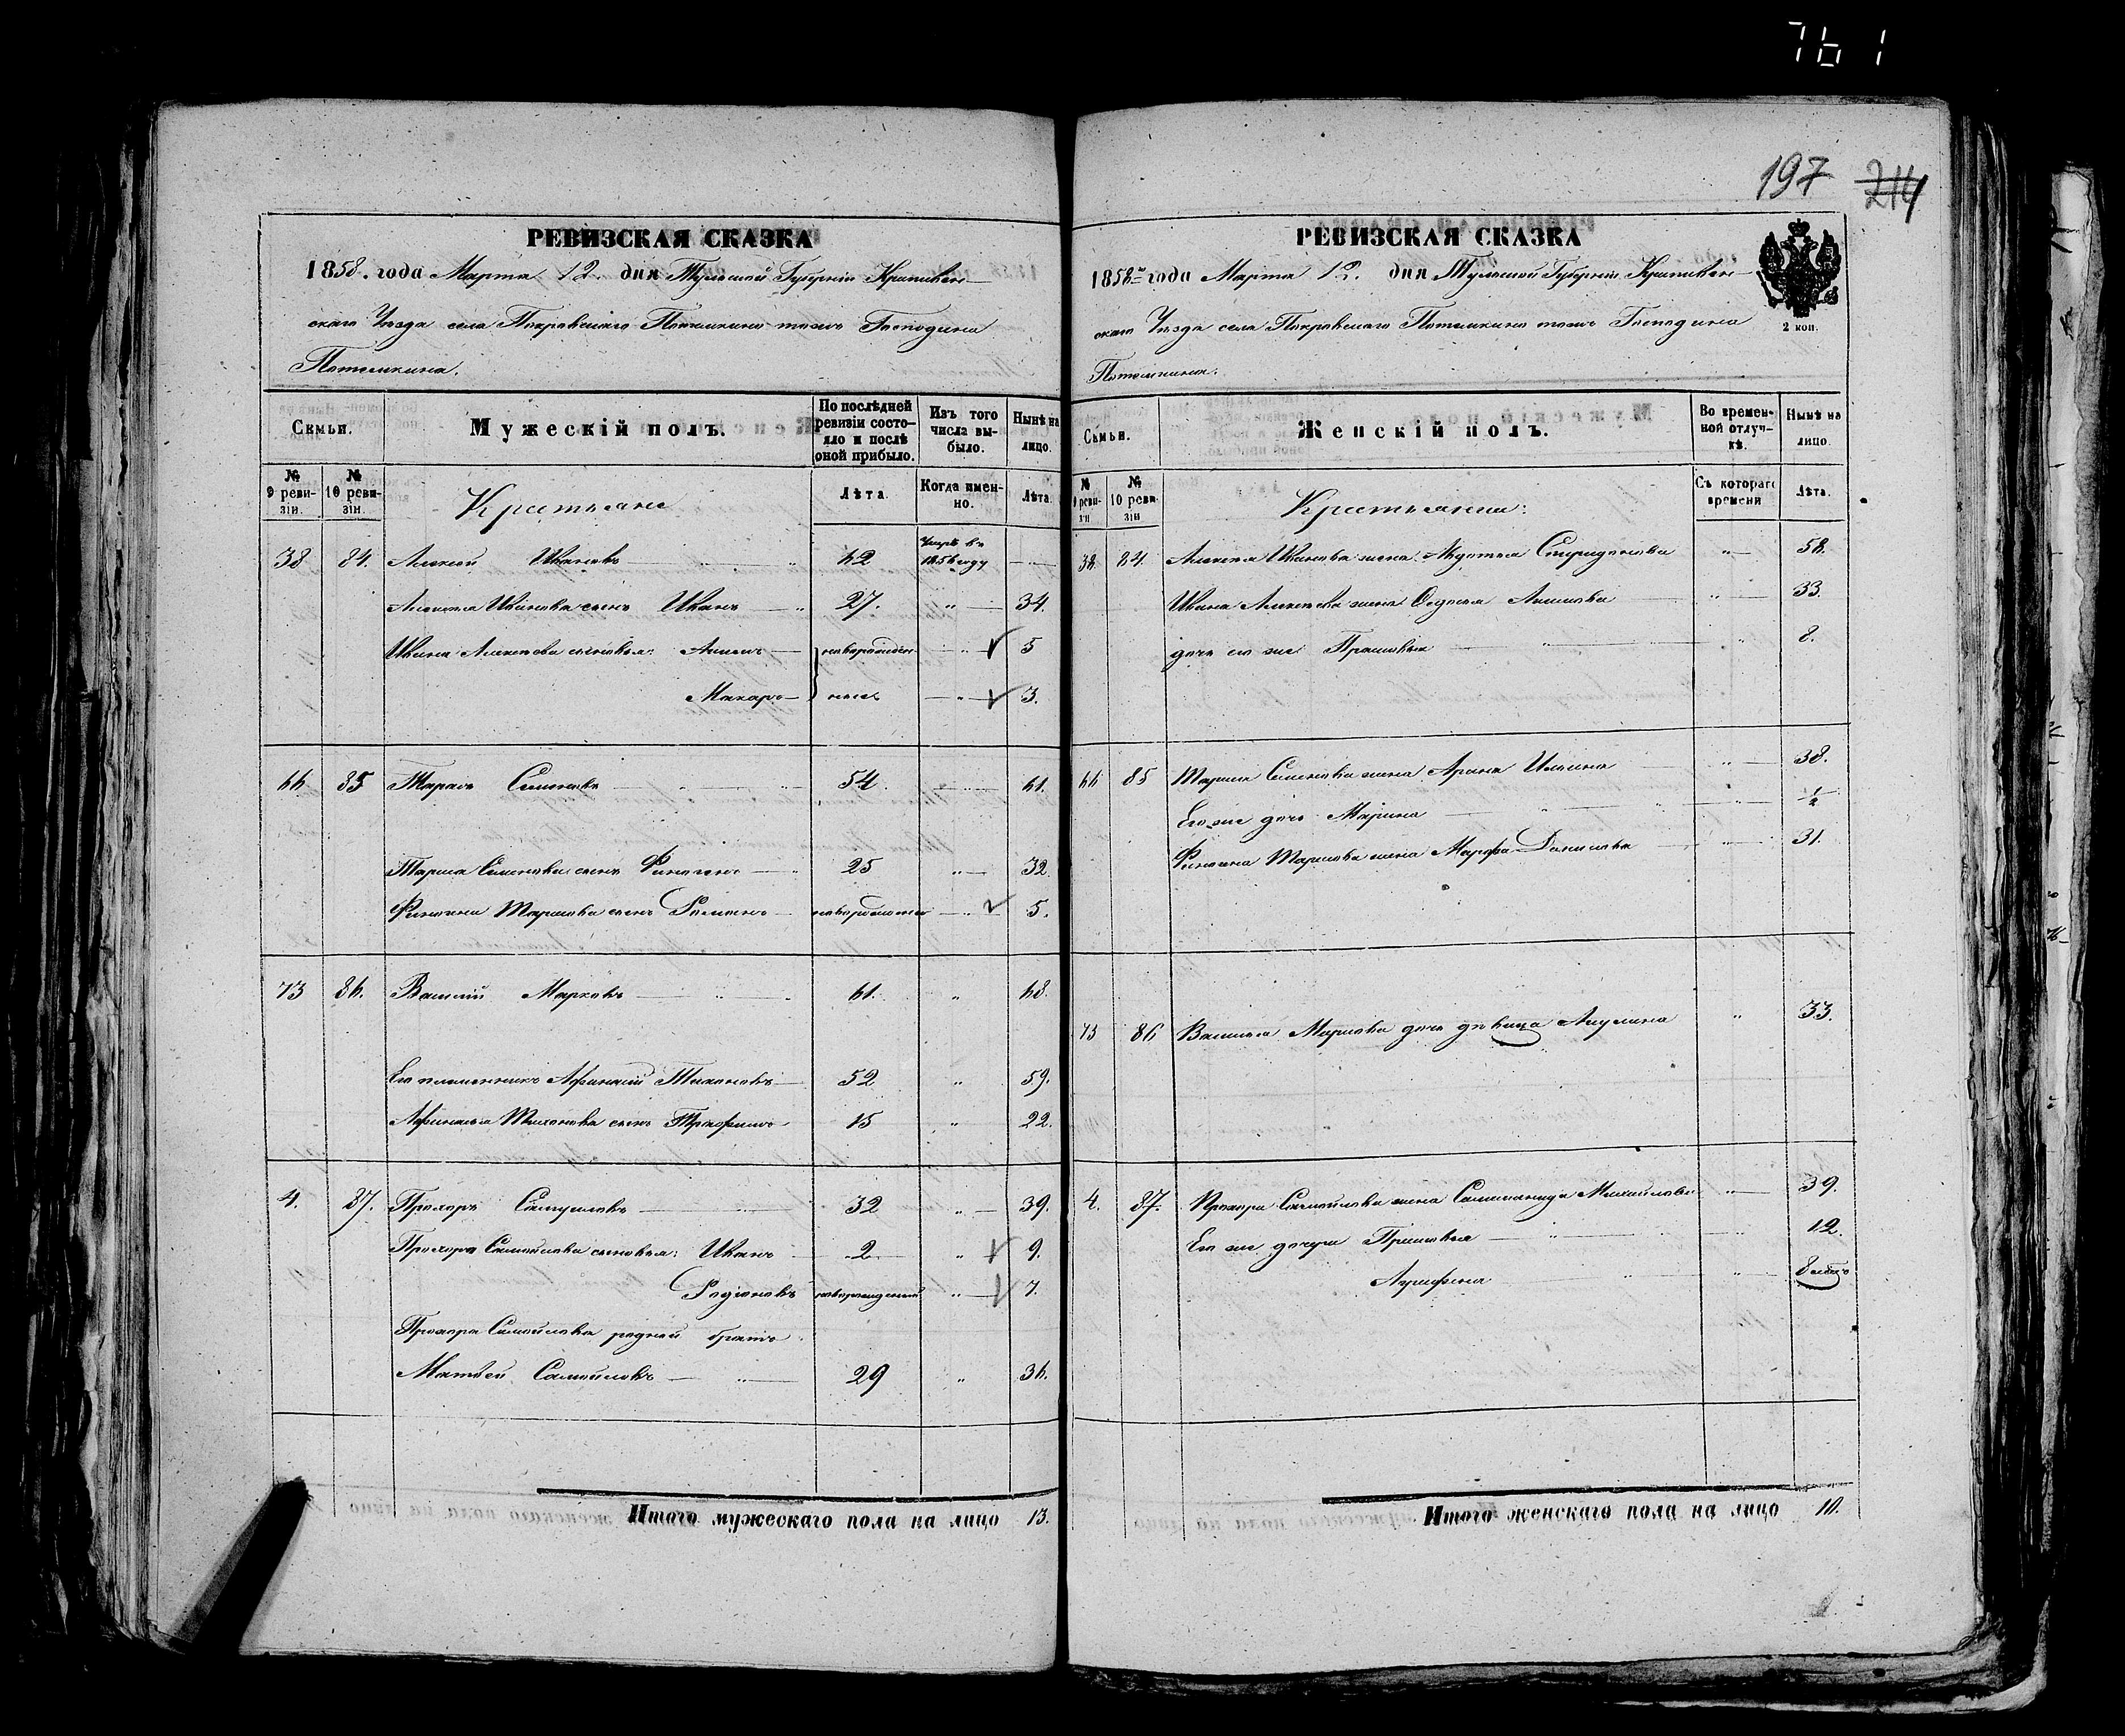 761
197 214
РЕВИЗСКАЯ СКАЗКА
1858. года Марта 12. дня Тульской Губерніи Крапивен-
скаго Уѣзда села Покровскаго Потемкино тожъ Господина
Потемкина.
Семьи.
Мужескій полъ.
По послѣдней ревизіи состояло и послѣ оной прибыло.
Изъ того числа выбыло.
Нынѣ на лицо.
№ 9 ревизіи.
№ 10 ревизіи.
Крестьяне
Лѣта
Когда именно.
Лѣта.
38 84. Алексѣй Ивановъ 42 Умръ въ году
Алексѣя Иванова сынъ Иванъ 27. " 34.
Ивана Алексѣева сыновья: Акимъ новорожден- " 5
Макаръ ные " 3.
66 85 Тарасъ Семеновъ 54. 61.
Тараса Семенова сынъ Финогенъ 25 " 32.
Финогена Тарасова сынъ новорожденъ " 5.
73 86. Василій Марковъ 61. " 68.
Его племянникъ Афанасій Тихоновъ 52 " 59.
Афанасья Тихонова сынъ Трофимъ 15 " 22.
4. 87. Прохоръ Самуиловъ 32 " 39.
Прохора Самойлова сыновья: Иванъ 2 " 9.
Родіонъ новорожденный " 7.
Прохора Самойлова родной братъ
Матвей Самойловъ 29 " 36.
Итого мужескаго пола на лицо 13.
РЕВИЗСКАЯ СКАЗКА
1858 года Марта 12. дня Тульской Губерніи Крапивен-
скаго Уѣзда села Покровскаго Потемкино тожъ Господина
Потемкина.
2 коп.
Семьи.
Женскій полъ.
Во временной отлучкѣ.
Нынѣ на лицо.
№ 9 ревизіи
№ 10 ревизіи
Крестьянки:
Съ котораго времени
Лѣта.
38. 84. Алексѣя Иванова жена Авдотья Спиридонова " 58.
Ивана Алексѣева жена Федосья Акимова " 33.
дочь его же Прасковья " 8.
66 85 Тараса Семенова жена Арина Ильина " 38.
Его же дочь Марина " 1/2
Финогена Тарасова жена Марфа Данилова " 31.
73 86 Василья Маркова дочь дѣвица Акулина " 33.
4. 87. Прохора Самойлова жена Саломанида Михайлова " 39.
Его же дочери Прасковья " 12.
Аграфена " 8
Итого женскаго пола на лицо 10.